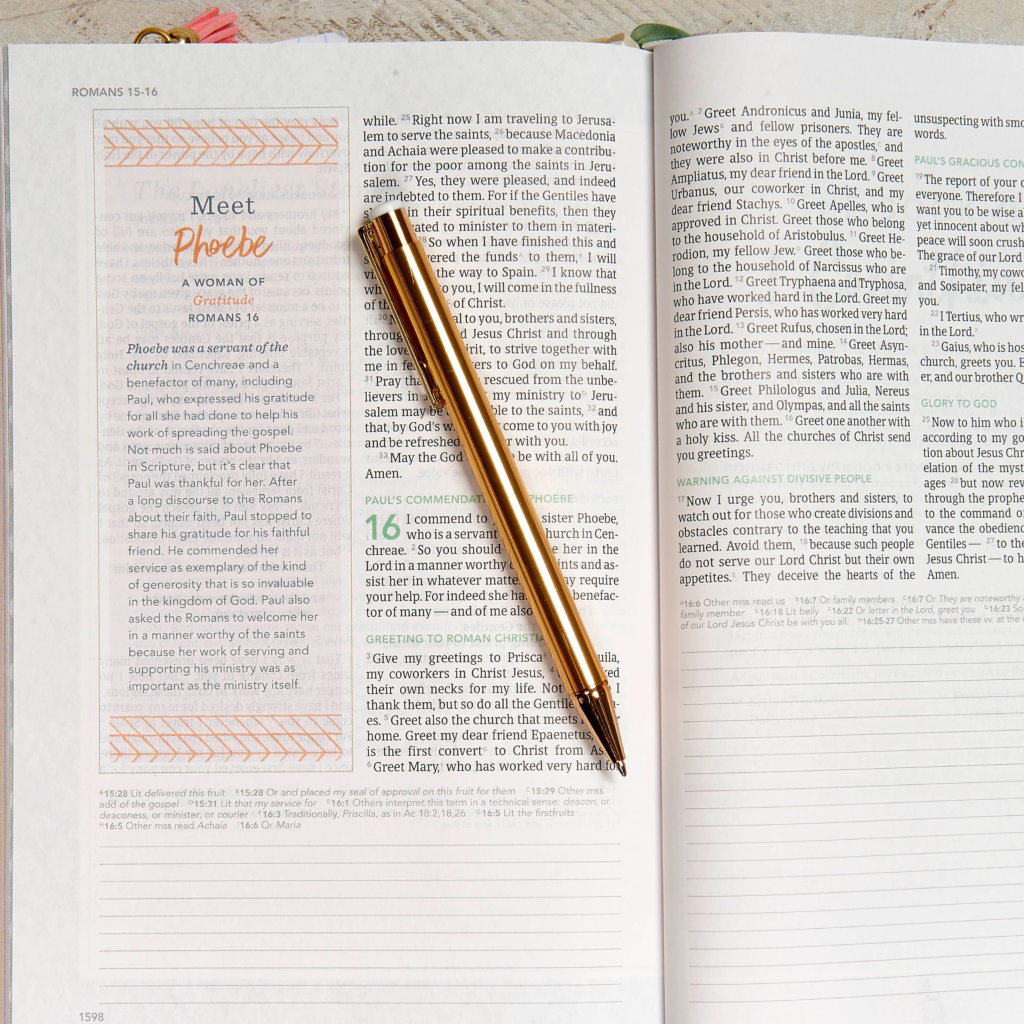 ROMANS 15-16
Meet
Phoebe
A WOMAN OF
Gratitude
ROMANS 16
Phoebe was a servant of the
church in Cenchreae and a
benefactor of many, including
Paul, who expressed his gratitude
for all she had done to help his
work of spreading the gospel.
Not much is said about Phoebe
in Scripture, but it's clear that
Paul was thankful for her. After
a long discourse to the Romans
about their faith, Paul stopped to
share his gratitude for his faithful
friend. He commended her
service as exemplary of the kind
of generosity that is so invaluable
in the kingdom of God. Paul also
asked the Romans to welcome her
in a manner worthy of the saints
because her work of serving and
supporting his ministry was as
important as the ministry itself.
while. 25 Right now I am traveling to Jerusa-
lem to serve the saints, 26 because Macedonia
and Achaia were pleased to make a contribu-
tion for the poor among the saints in Jeru-
salem. 27 Yes, they were pleased, and indeed
are indebted to them. For if the Gentiles have
in their spiritual benefits, then they
to minister to them in materi-
28 So when I have finished this and
the funds A to them, B I will
the way to Spain. 29 I know that
to you, I will come in the fullness
of Christ.
30 to you, brothers and sisters,
Jesus Christ and through
the to strive together with
me in to God on my behalf.
31 Pray rescued from the unbe-
lievers in my ministry to D Jeru-
salem may be to the saints, 32 and
that, by God's come to you with joy
and be refreshed with you.
33 May the God be with all of you.
Amen.
PAUL'S PHOEBE
16 I commend to sister Phoebe,
who is a servant in Cen-
chreae. 2 So you should her in the
Lord in a manner worthy and as-
sist her in whatever require
your help. For indeed she benefac-
tor of many — and of me
GREETING TO ROMAN
3 Give my greetings to Prisca F
my coworkers in Christ Jesus, 4
their own necks for my life. Not I
thank them, but so do all the
es. 5 Greet also the church that meets
home. Greet my dear friend Epaenetus,
is the first convert G to Christ from
6 Greet Mary, I who has worked very hard
A 15:28 Lit delivered this fruit B 15:28 Or and placed my seal of approval on this fruit for them C 15:29 Other mss
add of the gospel D 15:31 Lit that my service for E 16:1 Others interpret this term in a technical sense: deacon, or
deaconess, or minister, or courier F 16:3 Traditionally, Priscilla, as in Ac 18:2,18,26 G 16:5 Lit the firstfruits
H 16:5 Other mss read Achaia I 16:6 Or Maria
1598
you. A 7 Greet Andronicus and Junia, my fel-
low Jews B and fellow prisoners. They are
noteworthy in the eyes of the apostles, C and
they were also in Christ before me. 8 Greet
Ampliatus, my dear friend in the Lord. 9 Greet
Urbanus, our coworker in Christ, and my
dear friend Stachys. 10 Greet Apelles, who is
approved in Christ. Greet those who belong
to the household of Aristobulus. 11 Greet He-
rodion, my fellow Jew. D Greet those who be-
long to the household of Narcissus who are
in the Lord. 12 Greet Tryphaena and Tryphosa,
who have worked hard in the Lord. Greet my
dear friend Persis, who has worked very hard
in the Lord. 13 Greet Rufus, chosen in the Lord;
also his mother — and mine. 14 Greet Asyn-
critus, Phlegon, Hermes, Patrobas, Hermas,
and the brothers and sisters who are with
them. 15 Greet Philologus and Julia, Nereus
and his sister, and Olympas, and all the saints
who are with them. 16 Greet one another with
a holy kiss. All the churches of Christ send
you greetings.
WARNING AGAINST DIVISIVE PEOPLE
17 Now I urge you, brothers and sisters, to
watch out for those who create divisions and
obstacles contrary to the teaching that you
learned. Avoid them, 18 because such people
do not serve our Lord Christ but their own
appetites. E They deceive the hearts of the
unsuspecting with
words.
PAUL'S GRACIOUS
19 The report of your
everyone. Therefore I
want you to be wise
yet innocent about
peace will soon crush
The grace of our Lord
21 Timothy, my
and Sosipater, my
you.
22 I Tertius, who
in the Lord. F
23 Gaius, who is
church, greets you.
er, and our brother
GLORY TO GOD
25 Now to him who
according to my
tion about Jesus
elation of the
ages 26 but now
through the
to the command
vance the
Gentiles — 27 to
Jesus Christ — to
Amen.
A 16:6 Other mss read us B 16:7 Or family members C 16:7 Or They are noteworthy
family member E 16:18 Lit belly F 16:22 Or letter in the Lord, greet you G 16:23
of our Lord Jesus Christ be with you all. H 16:25-27 Other mss have these vv. at the